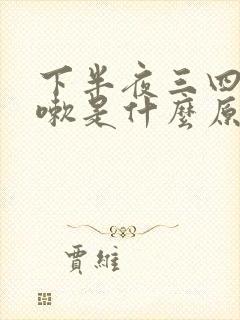 下半夜三四
嗽是什麼原
賈維